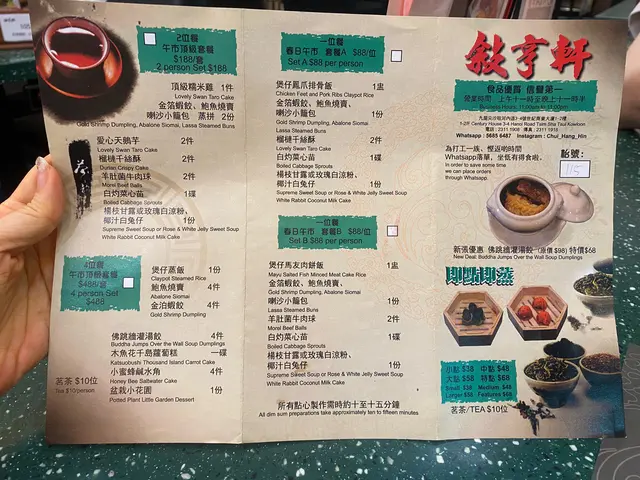 2位餐
午市頂級套餐
$188/套
2 person Set $188
頂級糯米雞 1件
Lovely Swan Taro Cake
金箔蝦餃、鮑魚燒賣
喇沙小籠包 蒸拼 2份
Gold Shrimp Dumpling, Abalone Siomai, Lassa Steamed Buns
愛心天鵝芋 2件
Lovely Swan Taro Cake
榴槤千絲酥 2件
Durian Crispy Cake
羊肚菌牛肉球 2件
Morel Beef Balls
白灼菜心苗 1碟
Boiled Cabbage Sprouts
楊枝甘露或玫瑰白涼粉、
椰汁白兔仔 1份
Supreme Sweet Soup or Rose & White Jelly Sweet Soup
White Rabbit Coconut Milk Cake
4位餐
午市頂級套餐
$488/套
4 person Set
$488
煲仔蒸飯 1份
Claypot Steamed Rice
鮑魚燒賣 4件
Abalone Siomai
金泊蝦餃 4件
Gold Shrimp Dumpling
佛跳牆灌湯餃 4件
Buddha Jumps Over the Wall Soup Dumplings
木魚花千島蘿蔔糕 一碟
Katsuobushi Thousand Island Carrot Cake
小蜜蜂鹹水角 4件
Honey Bee Saltwater Cake
盆栽小花園 1份
Potted Plant Little Garden Dessert
茗茶 $10位
Tea $10/person
一位餐
春日午市 套餐A $88/位
Set A $88 per person
煲仔鳳爪排骨飯 1盅
Chicken Feet and Pork Ribs Claypot Rice
金箔蝦餃、鮑魚燒賣、
喇沙小籠包 1份
Gold Shrimp Dumpling, Abalone Siomai
Lassa Steamed Buns
榴槤千絲酥 2件
Lovely Swan Taro Cake
白灼菜心苗 1碟
Boiled Cabbage Sprouts
楊枝甘露或玫瑰白涼粉、
椰汁白兔仔 1份
Supreme Sweet Soup or Rose & White Jelly Sweet Soup
White Rabbit Coconut Milk Cake
一位餐
春日午市 套餐B $88/位
Set B $88 per person
煲仔馬友肉餅飯 1盅
Mayu Salted Fish Minced Meat Cake Rice
金箔蝦餃、鮑魚燒賣、
Gold Shrimp Dumpling, Abalone Siomai
喇沙小籠包 1份
Lassa Steamed Buns
羊肚菌牛肉球 2件
Morel Beef Balls
白灼菜心苗 1碟
Boiled Cabbage Sprouts
楊枝或玫瑰白涼粉、
椰汁白兔仔 1份
Supreme Sweet Soup or Rose & White Jelly Sweet Soup
White Rabbit Coconut Milk Cake
所有點心製作需時約十至十五分鐘
All dim sum preparations take approximately ten to fifteen minutes
敘亨軒
食品優質 信譽第一
營業時間 上午十一時至晚上十一時半
Business Hours: 11:00am to 11:30pm
九龍尖沙咀河內道3-4號世紀商業大廈1-2樓
1-2/F Century House 3-4 Hanoi Road Tsim Sha Tsui Kowloon
電話 : 2311 1908 傳真 : 2311 1918
Whatsapp : 5685 6487 Instagram : Chui_Hang_Hin
為打工一族、慳返啲時間
Whatsapp落單，坐低有得食啦。
In order to save some time
we can place orders
through Whatsapp.
枱號:
115
新張優惠 佛跳牆灌湯餃 (原價 $98) 特價$68
New Deal: Buddha Jumps Over the Wall Soup Dumplings
即點即蒸
小點 $38 中點 $48
大點 $58 特點 $68
Small $38 Medium $48
Larger $58 Features $68
茗茶/TEA $10位